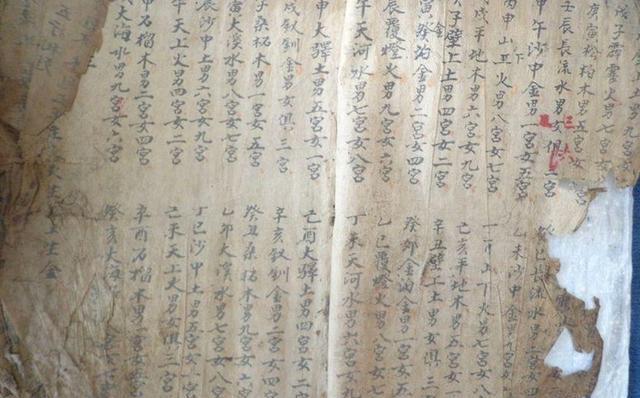 戊子霹靂火男七宮女
庚寅松柏木男
壬辰長流水男女俱三宮
三六
甲午沙中金男一宮女五宮
丙申山下火男八宮女七宮
戊戌平地木男六宮女九宮
子壁上土男四宮女二宮
寅金泊金男二宮女四宮
辰覆燈火男九宮女六宮
午天河水男七宮女八宮
申大驛土男五宮女一宮
戌釵釧金男女俱三宮
子桑柘木男一宮女五宮
寅大溪水男八宮女七宮
辰沙中土男六宮女九宮
午天上火男四宮女二宮
申石榴木男二宮女四宮
大海水男九宮女六宮
巳長流水男二宮女四
乙未沙中金男九宮女
丁酉山下火男七宮女八
己亥平地木男五宮女一
辛丑壁上土男女俱三宮
癸卯金泊金男一宮女五
乙巳覆燈火男八宮女七
丁未天河水男六宮女九
己酉大驛土男四宮女二宮
辛亥釵釧金男二宮女四宮
癸丑桑柘木男九宮女六宮
乙卯大溪水男七宮女八宮
丁巳沙中土男五宮女一宮
己未天上火男女俱三宮
辛酉石榴木男一宮女五宮
癸亥大海水男八宮女七宮